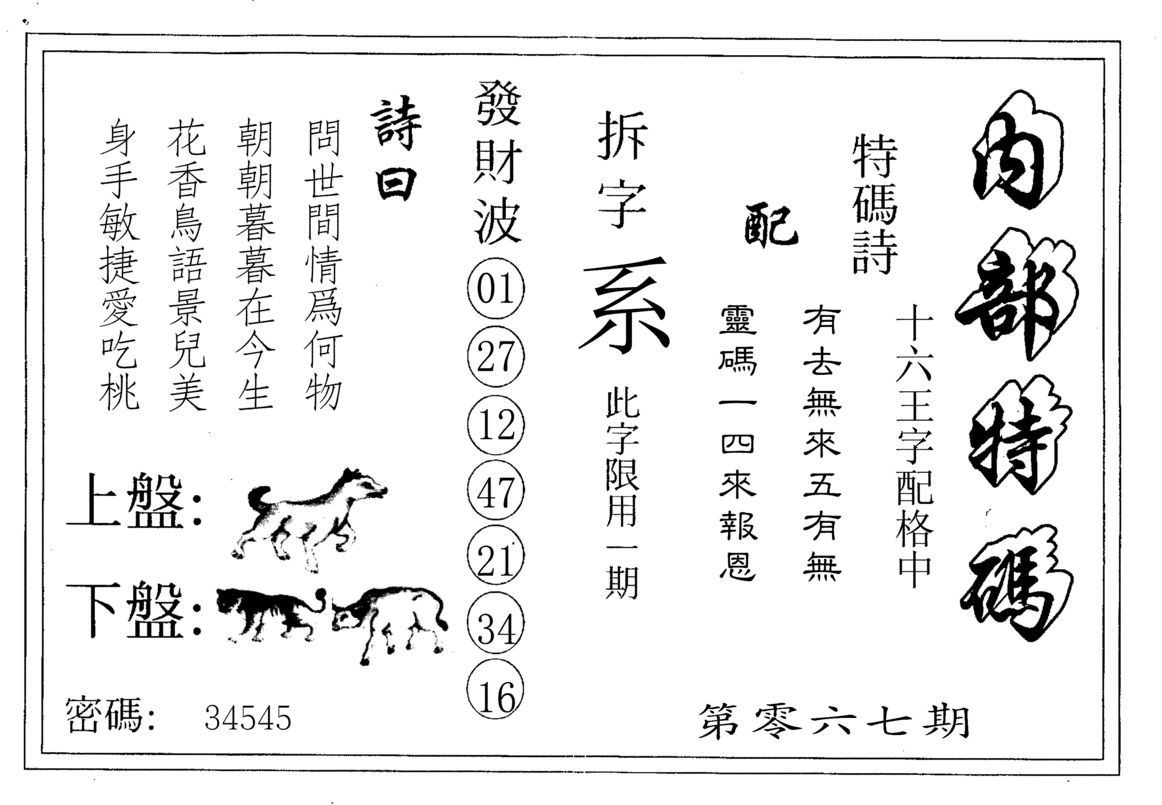 內部特碼
十六王字配格中
特碼詩
有去無來五有無
配
靈碼一四來報恩
拆字
系
此字限用一期
發財波
01
27
12
47
21
34
16
詩曰
問世間情爲何物
朝朝暮暮在今生
花香鳥語景兒美
身手敏捷愛吃桃
上盤:
下盤:
密碼: 34545
第零六七期